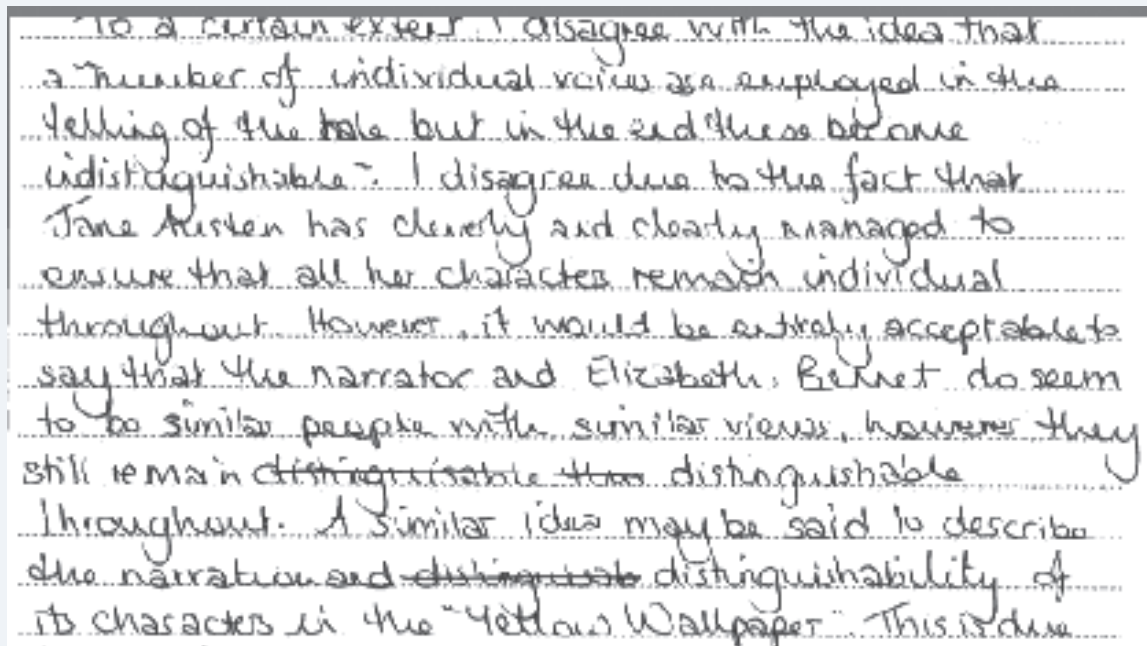 To a certain extent, I disagree with the idea that
a "number of individual voices are employed in the
telling of the tale but in the end these become
indistinguishable". I disagree due to the fact that
Jane Austen has cleverly and clearly managed to
ensure that all her characters remain individual
throughout. However, it would be entirely acceptable to
say that the narrator and Elizabeth Bennet do seem
to be similar people with similar views, however they
still remain distinguisable thro distinguishable
throughout. A similar idea may be said to describe
the narration and distinguisab distinguishability of
its characters in the "Yellow Wallpaper". This is due